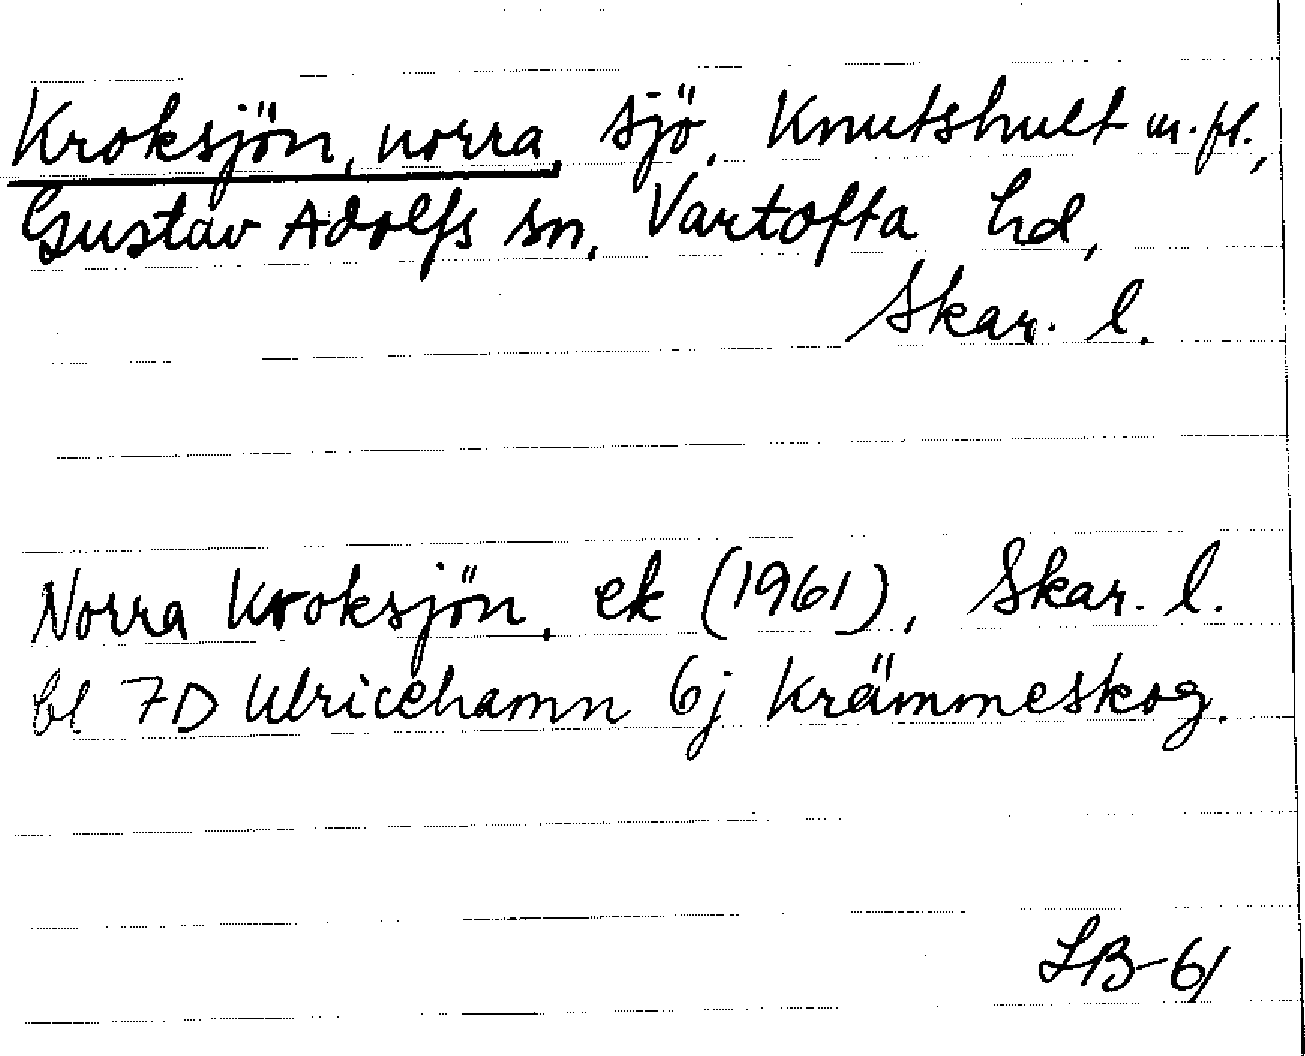 Kroksjön, norra, sjö, Knutshult m.fl.,
Gustav Adolfs sn, Vartofta hd,
Skar. l.
Norra Kroksjön, ek (1961), Skar. l.
bl 7D Ulricehamn 6j Krämmeskog.
LB-61